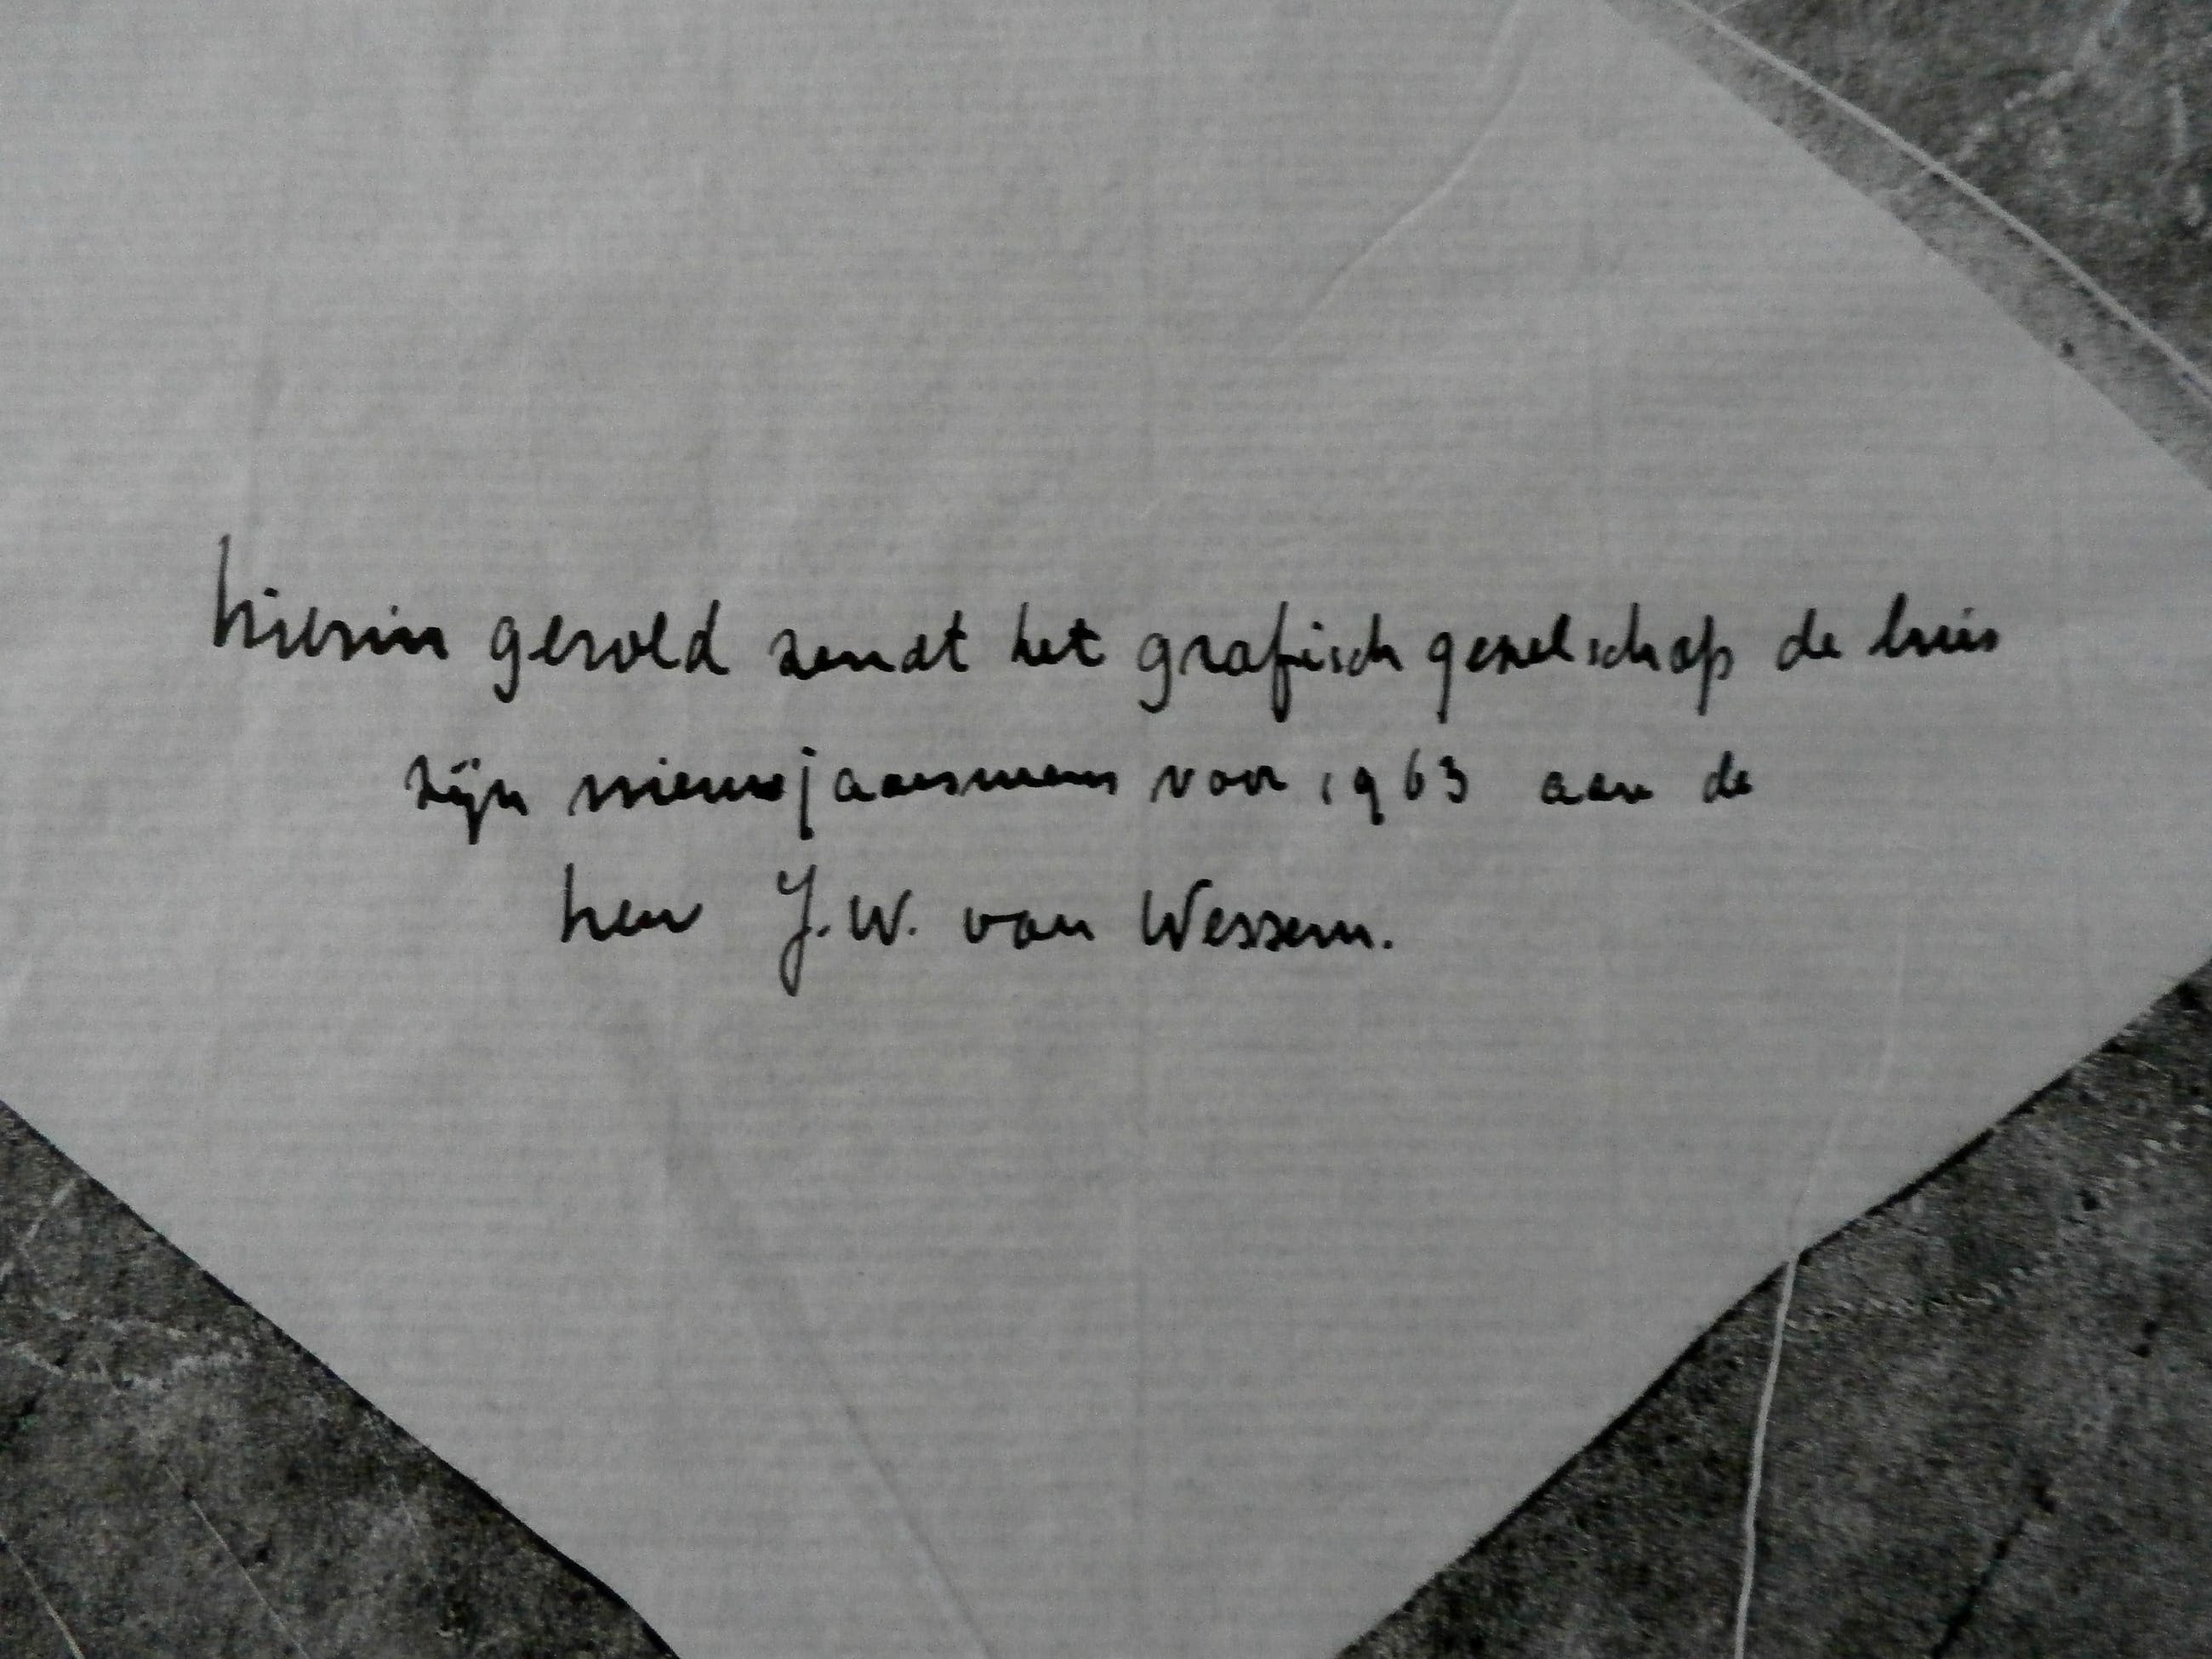 hierin gerold zendt het grafisch gezelschap de luis
zijn nieuwjaarswens voor 1963 aan de
heer J.W. van Wessem.